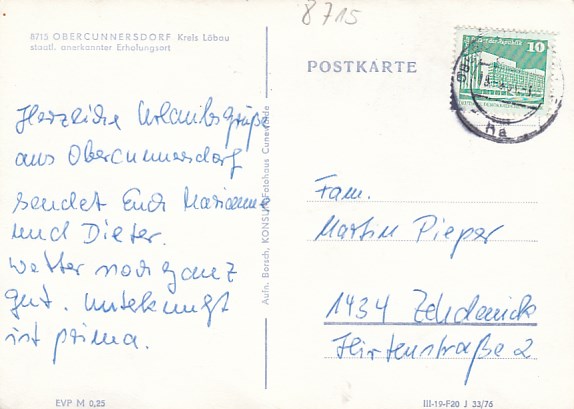 8715
8715 OBERCUNNERSDORF Kreis Löbau
staatl. anerkannter Erholungsort
POSTKARTE
10
Herzliche Urlaubsgrüße
aus Obercunnersdorf
sendet Euch Marianne
und Dieter.
Wetter noch ganz
gut. Unterkunft
ist prima.
Aufn. Borsch, KONSUM-Fotohaus Cunewalde
Fam.
Martin Pieper
1434 Zehdenick
Hirtenstraße 2
EVP M 0,25
III-19-F20 J 33/76